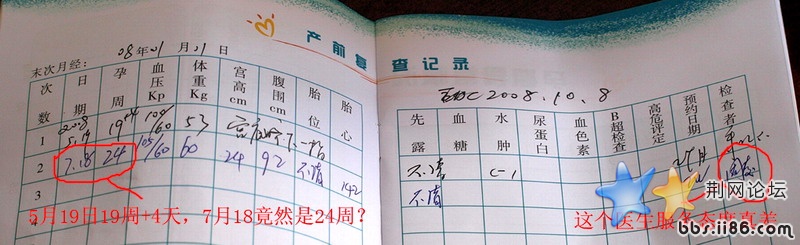 产前基查记录
末次月经：08年01月01日
次数 日期 孕周 血压Kp 体重Kg 宫高cm 腹围cm 胎位 胎心
1 2008 5.19 19+4 100/60 53
2 7.18 24 105/60 60 24 92 不清 142
3
4
2008.10.8
先露 血糖 水肿 尿蛋白 血色素 B超检查 高危评定 预约日期 检查者
不清 (-)
不清
5月19日19周+4天，7月18竟然是24周？
这个医生服务态度真差
荆网论坛
bbs.ii86.com